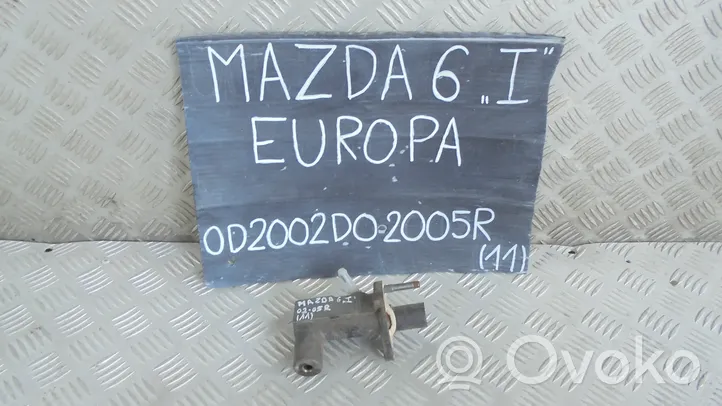 MAZDA 6 „I"
EUROPA
OD2002DO2005R
(11)
MAZDA 6 „I"
02-05R
(11)
Ovoko